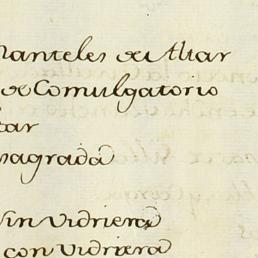 manteles de Altar
de Comulgatorio
tar
nsagrada
sin vidriera
con vidriera